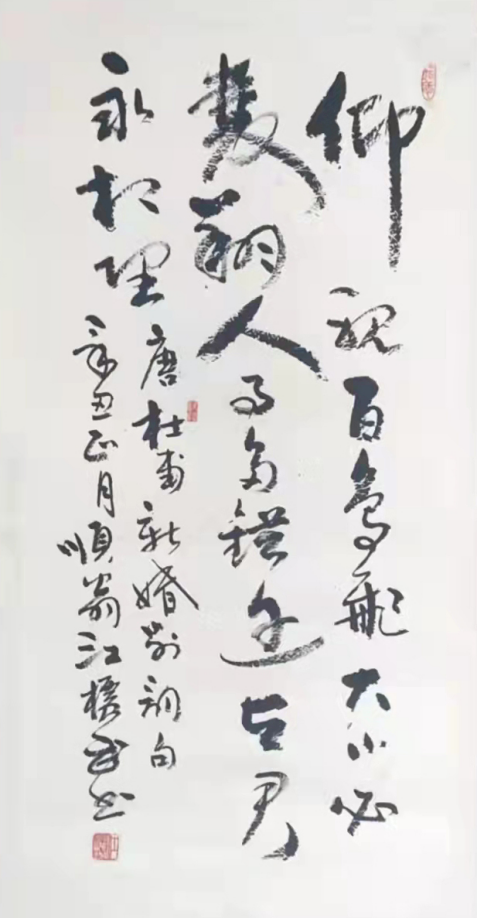 仰視百鳥飛大小必
雙翔人事多錯迕与君
永相望 唐杜甫新婚別詩句
辛丑正月順翁江書